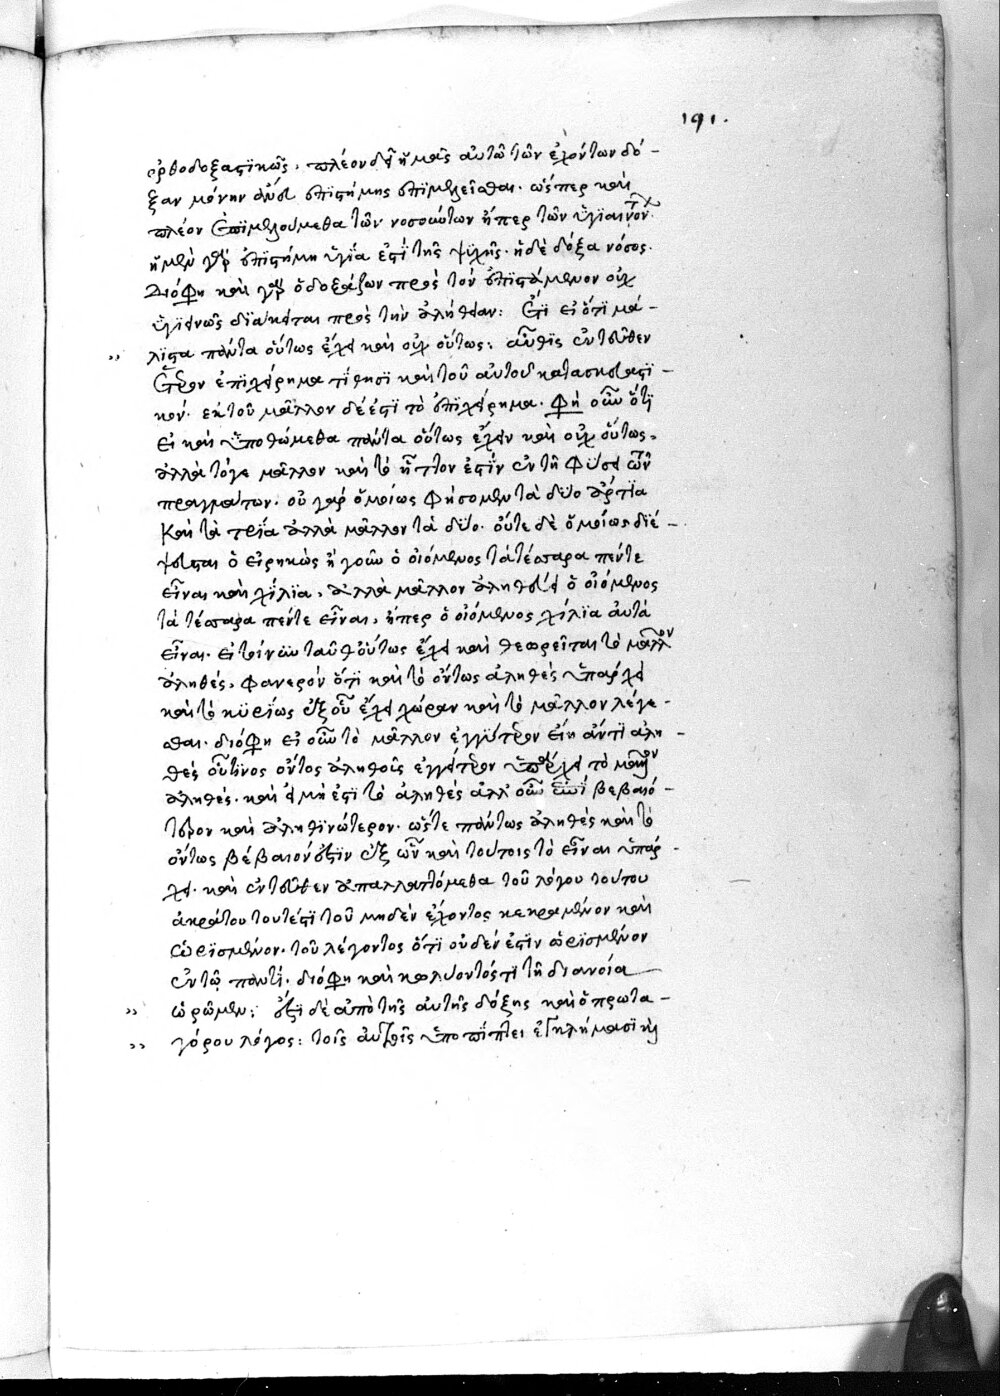 191.
ὀρθοδοξαστικῶς, πλέον δεῖ ἡμᾶς αὐτῶ τῶν ἐχόντων δό-
ξαν μόνην ἄνευ ἐπιστήμης ἐπιμελεῖσθαι. ὥσπερ καὶ
πλέον ἐπιμελούμεθα τῶν νοσούντων ἤπερ τῶν ὑγιαινόντων.
ἡ μὲν γὰρ ἐπιστήμη ὑγίεια ἐστὶ τῆς ψυχῆς. ἡ δὲ δόξα νόσος.
Διό φη καὶ γὰρ ὁ δοξάζων πρὸς τὸν ἐπιστάμενον οὐχ
ὑγιεινῶς διάκειται πρὸς τὴν ἀλήθειαν: Ἔτι εἰ ὅτι μά-
λιστα πάντα οὕτως ἔχει καὶ οὐχ οὕτως: αὖθις ἐντεῦθεν
ἕτερον ἐπιχείρημα τίθησι καὶ τοῦ αὐτοῦ κατασκευαστι-
κόν. ἐκ τοῦ μᾶλλον δέ ἐστι τὸ ἐπιχείρημα. φη οὖν ὅτι
εἰ καὶ ὑποθώμεθα πάντα οὕτως ἔχειν καὶ οὐχ οὕτως,
ἀλλὰ τόγε μᾶλλον καὶ τὸ ἧττον ἐστὶν ἐν τῇ φύσει τῶν
πραγμάτων. οὐ γὰρ ὁμοίως φήσομεν τὰ δύο ἄρτια
καὶ τὰ τρία ἀλλὰ μᾶλλον τὰ δύο. οὔτε δὲ ὁμοίως διέ-
ψευσται ὁ εἰρηκὼς ἤγουν ὁ οἰόμενος τὰ τέσσαρα πέντε
εἶναι καὶ χίλια, ἀλλὰ μᾶλλον ἀληθεύει ὁ οἰόμενος
τὰ τέσσαρα πέντε εἶναι, ἤπερ ὁ οἰόμενος χίλια αὐτὰ
εἶναι. εἰ τοίνυν ταῦθ οὕτως ἔχει καὶ θεωρεῖται τὸ μᾶλλον
ἀληθές, φανερὸν ὅτι καὶ τὸ ὄντως ἀληθὲς ὑπάρχει
καὶ τὸ κυρίως ἐξ οὗ ἔχει χώραν καὶ τὸ μᾶλλον λέγε-
σθαι. διό φη εἰ οὖν τὸ μᾶλλον ἐγγύτερον εἴη ἄν τι ἀλη-
θὲς οὗτινος ὄντος ἀληθοῦς ἐγγύτερον ὑπάρχει τὸ μᾶλλον
ἀληθές. καὶ εἰ μή ἐστι τὸ ἀληθὲς ἀλλ οὖν ἐστὶ βεβαιό-
τερον καὶ ἀληθινώτερον. ὥστε πάντως ἀληθὲς καὶ τὸ
ὄντως βέβαιόν ἐστιν ἐξ ὧν καὶ τούτοις τὸ εἶναι ὑπάρ-
χει. καὶ ἐντεῦθεν ἀπαλλαττόμεθα τοῦ λόγου τούτου
ἀκράτου τουτέστι τοῦ μηδὲν ἔχοντος κεκραμένον καὶ
ὡρισμένον. τοῦ λέγοντος ὅτι οὐδέν ἐστιν ὡρισμένον
ἐν τῷ παντί. διό φη καὶ κωλύοντός τι τῇ διανοίᾳ
ὡρῶμεν: ἔστι δὲ ἀπὸ τῆς αὐτῆς δόξης καὶ ὁ πρωτα-
γόρου λόγος: τοῖς αὐτοῖς ὑποπίπτει ἐγκλήμασι καὶ